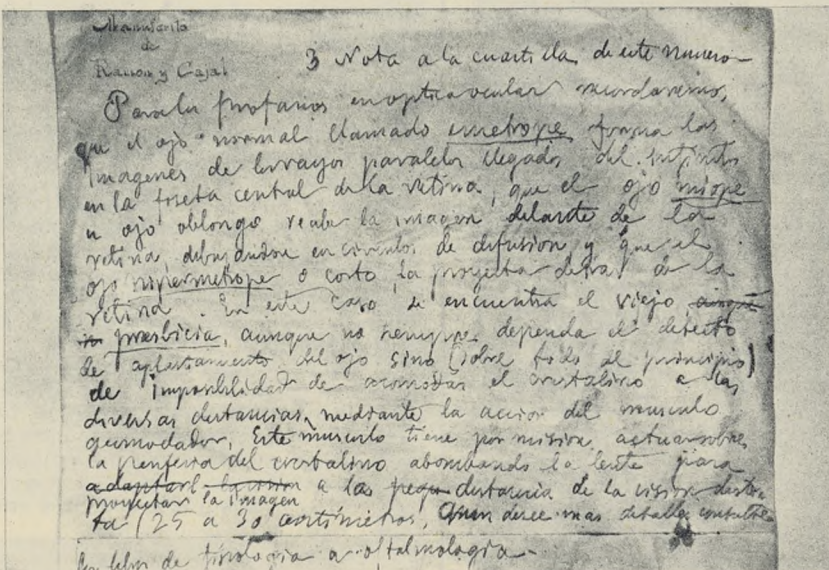 Manuscrito
de
Ramon y Cajal
3 Nota a la cuartilla de este numero
Para los profanos en optica ocular recordaremos,
que el ojo normal llamado emetrope forma las
imagenes de los rayos paralelos llegados del infinito
en la foseta central de la retina, que el ojo miope
u ojo oblongo recibe la imagen delante de la
retina dibujandose en circulos de difusion y que el
ojo hipermetrope o corto, la proyecta detras de la
retina. En este caso se encuentra el viejo
presbicia, aunque no siempre dependa el defecto
de aplastamiento del ojo sino (sobre todo al principio)
de imposibilidad de acomodar el cristalino a las
diversas distancias, mediante la accion del musculo
acomodador. Este musculo tiene por mision actuar sobre
la periferia del cristalino abombando la lente para
a las distancia de la vision
proyectar la imagen
ta (25 a 30 centimetros. Quien desee mas detalles consulte
libro de fisiologia o oftalmologia.